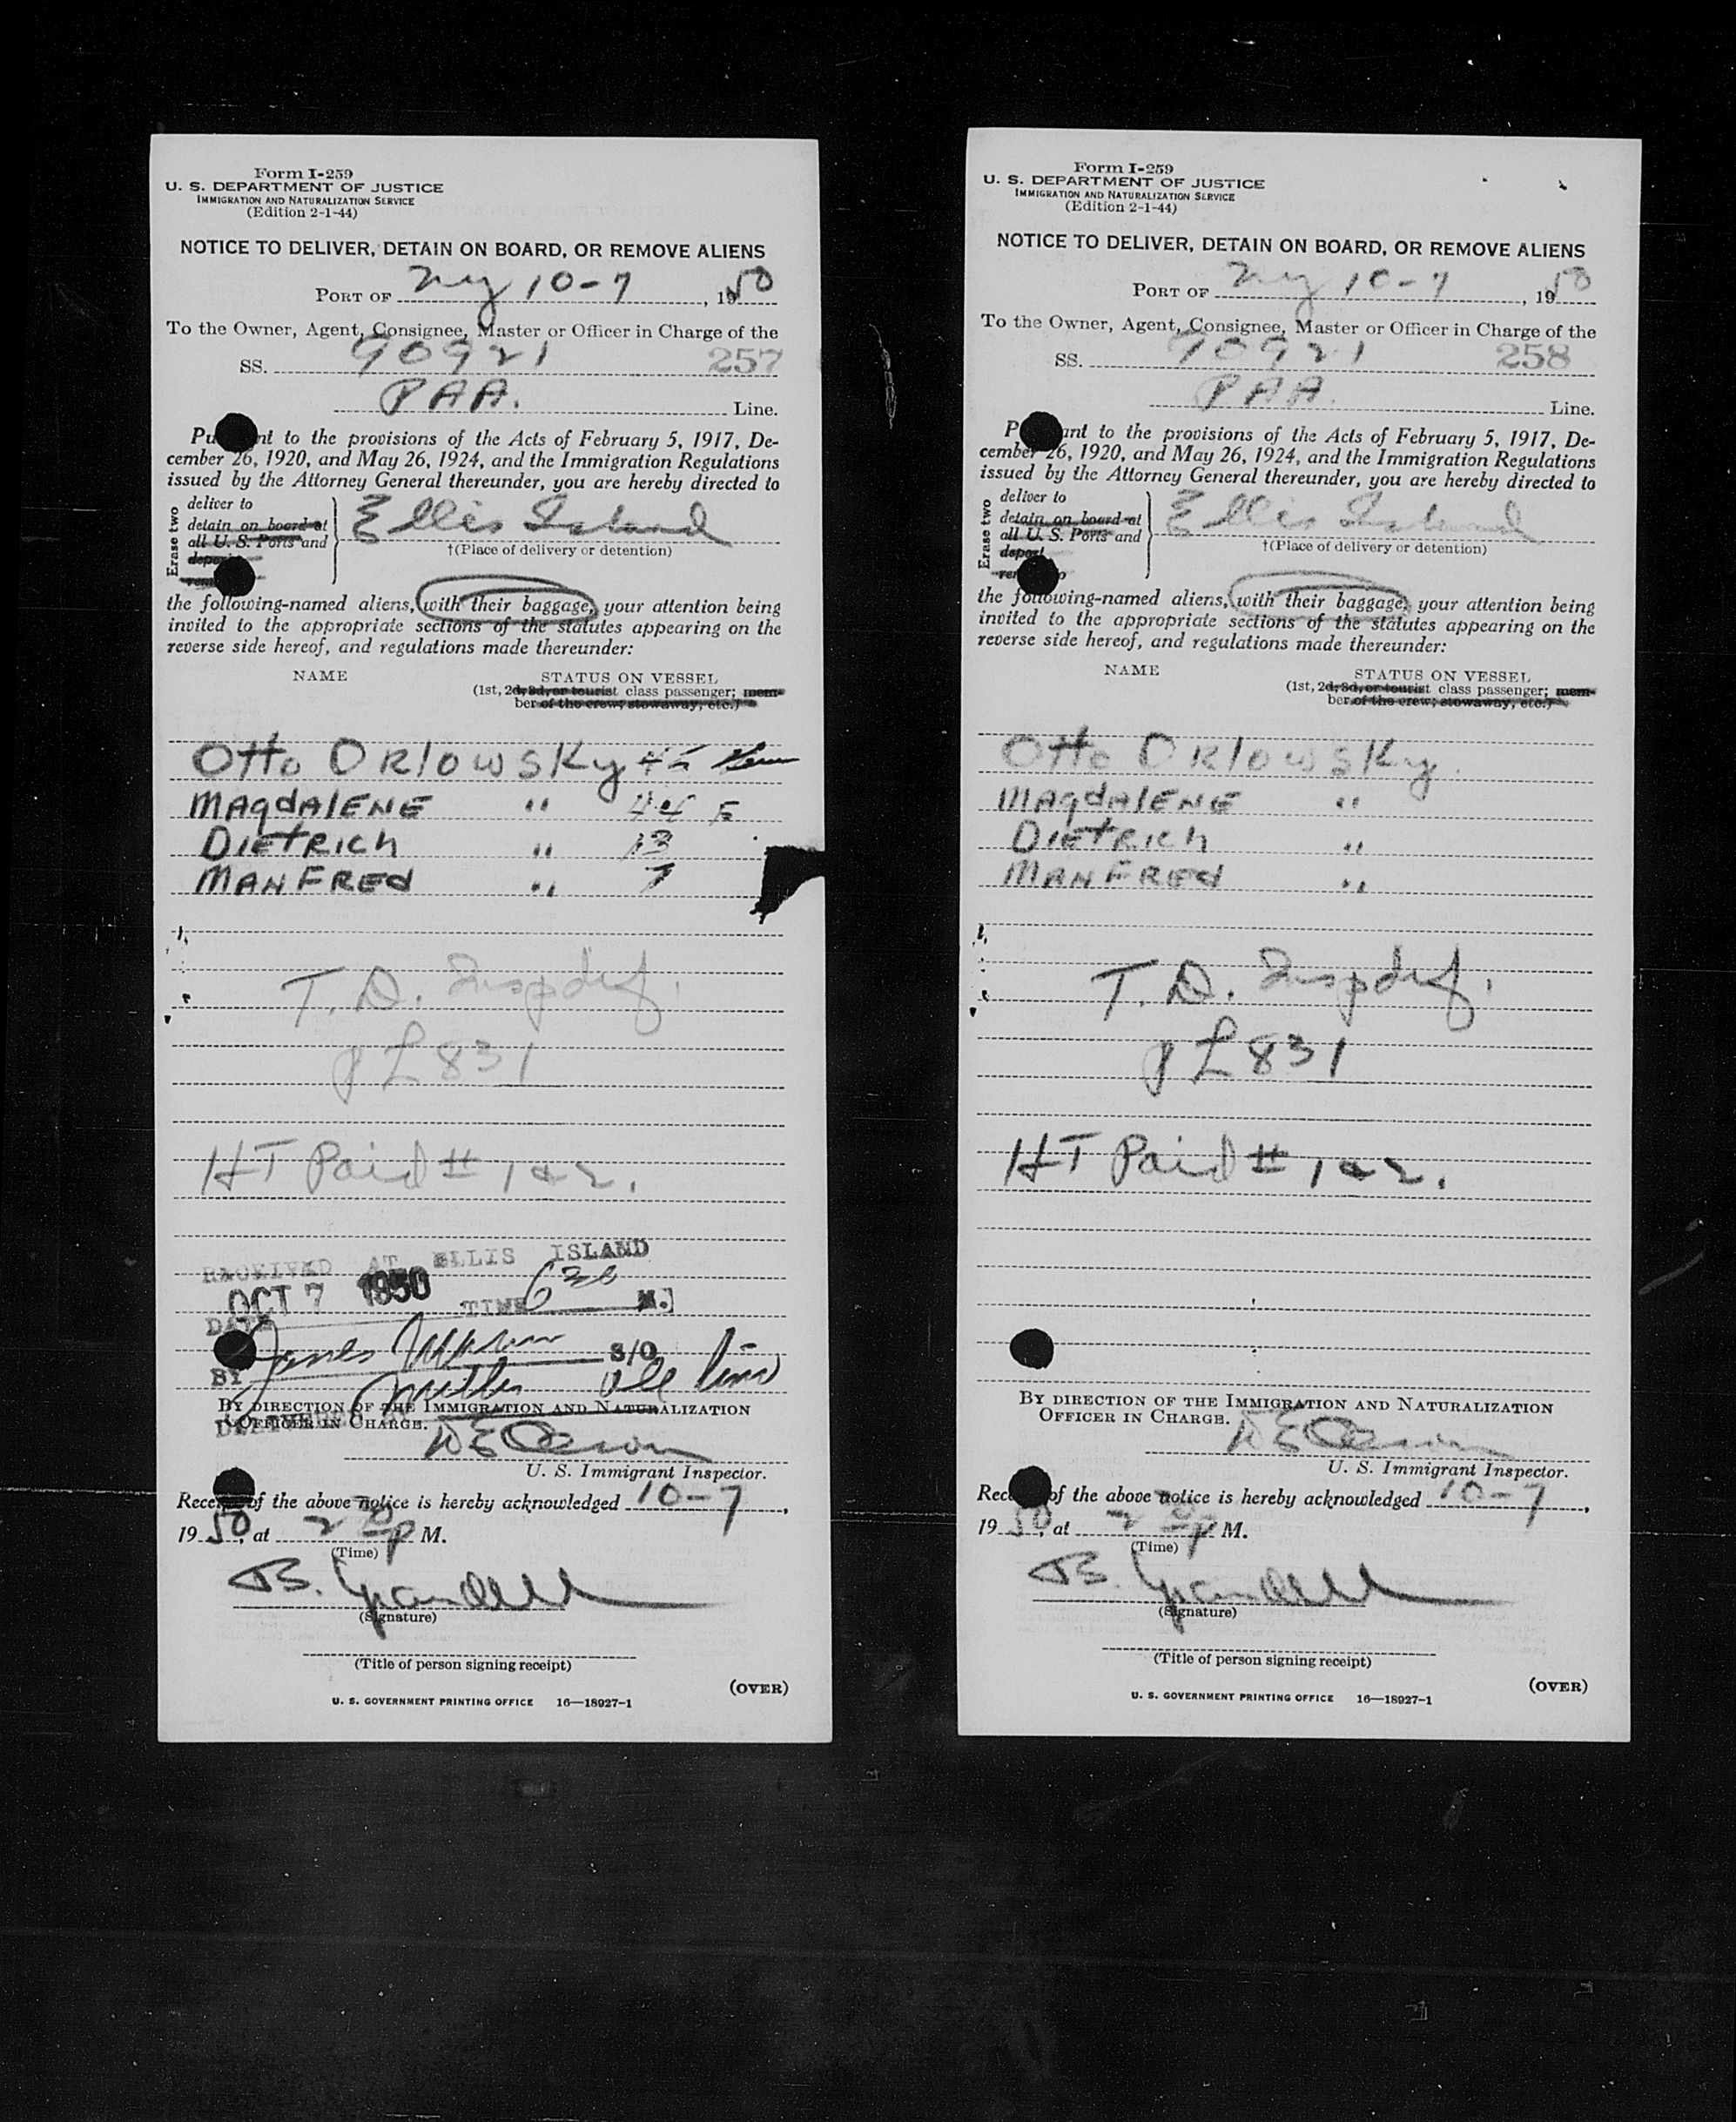 Form I-259
U. S. DEPARTMENT OF JUSTICE
IMMIGRATION AND NATURALIZATION SERVICE
(Edition 2-1-44)
NOTICE TO DELIVER, DETAIN ON BOARD, OR REMOVE ALIENS
PORT OF NY 10-7, 1950
To the Owner, Agent, Consignee, Master or Officer in Charge of the
SS. 90921 257
PAA. Line.
Pu nt to the provisions of the Acts of February 5, 1917, De-
cember 26, 1920, and May 26, 1924, and the Immigration Regulations
issued by the Attorney General thereunder, you are hereby directed to
Erase two
deliver to
detain on board at
all U. S. Ports and
Ellis Island
†(Place of delivery or detention)
the following-named aliens, with their baggage, your attention being
invited to the appropriate sections of the statutes appearing on the
reverse side hereof, and regulations made thereunder:
NAME STATUS ON VESSEL
(1st, 2d, 3d, or tourist class passenger; mem-
ber of the crew; stowaway, etc.)
Otto ORlowsKy 45
MAgdAlENE " 44 F
DIEtRIch " 13
MANFREd " 7
T. D.
831
HT Paid # 1 & 2.
RECEIVED AT ELLIS ISLAND
OCT 7 1950 TIME 6 30 M.
DATE
BY James S/O
BY DIRECTION OF THE IMMIGRATION AND NATURALIZATION
OFFICER IN CHARGE.
U. S. Immigrant Inspector.
Rece of the above notice is hereby acknowledged 10-7,
1950, at 2 30 P M.
(Time)
B.
(Signature)
(Title of person signing receipt)
(OVER)
U. S. GOVERNMENT PRINTING OFFICE 16—18927-1
Form I-259
U. S. DEPARTMENT OF JUSTICE
IMMIGRATION AND NATURALIZATION SERVICE
(Edition 2-1-44)
NOTICE TO DELIVER, DETAIN ON BOARD, OR REMOVE ALIENS
PORT OF NY 10-7, 1950
To the Owner, Agent, Consignee, Master or Officer in Charge of the
SS. 90921 258
PAA. Line.
P ant to the provisions of the Acts of February 5, 1917, De-
cember 26, 1920, and May 26, 1924, and the Immigration Regulations
issued by the Attorney General thereunder, you are hereby directed to
Erase two
deliver to
detain on board at
all U. S. Ports and
Ellis Island
†(Place of delivery or detention)
the following-named aliens, with their baggage, your attention being
invited to the appropriate sections of the statutes appearing on the
reverse side hereof, and regulations made thereunder:
NAME STATUS ON VESSEL
(1st, 2d, 3d, or tourist class passenger; mem-
ber of the crew; stowaway, etc.)
Otto ORlowsKy.
MAgdAlENE "
DIEtRIch "
MANFREd "
T. D.
831
HT Paid # 1 & 2.
BY DIRECTION OF THE IMMIGRATION AND NATURALIZATION
OFFICER IN CHARGE.
U. S. Immigrant Inspector.
Rec of the above notice is hereby acknowledged 10-7,
1950, at 2 30 P M.
(Time)
B.
(Signature)
(Title of person signing receipt)
(OVER)
U. S. GOVERNMENT PRINTING OFFICE 16—18927-1